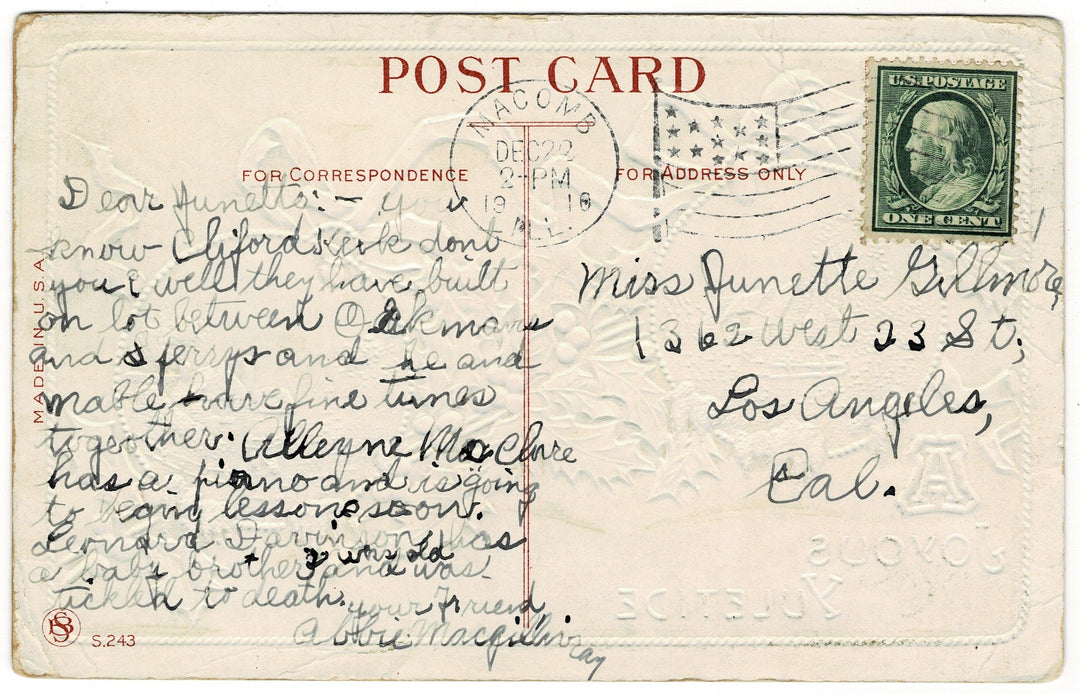 POST CARD
MACOMB
DEC 22
2-PM
1910
ILL.
U.S. POSTAGE
ONE CENT
FOR CORRESPONDENCE
FOR ADDRESS ONLY
MADE IN U.S.A.
Dear Junetta:- You
know Cliford Kerk dont
you? well they have built
on lot between
and Sperrys and he and
mable have fine times
together. Alleyne Mc Clure
has a piano and is going
to begin lessons soon.
Leonard Davinson has
a baby brother 3 wks old and was
tickled to death.
your Friend
Abbie Macgillivray
Miss Junette Gillmore,
1362 West 23 St;
Los Angeles,
Cal.
A
JOYOUS
YULETIDE
S.243